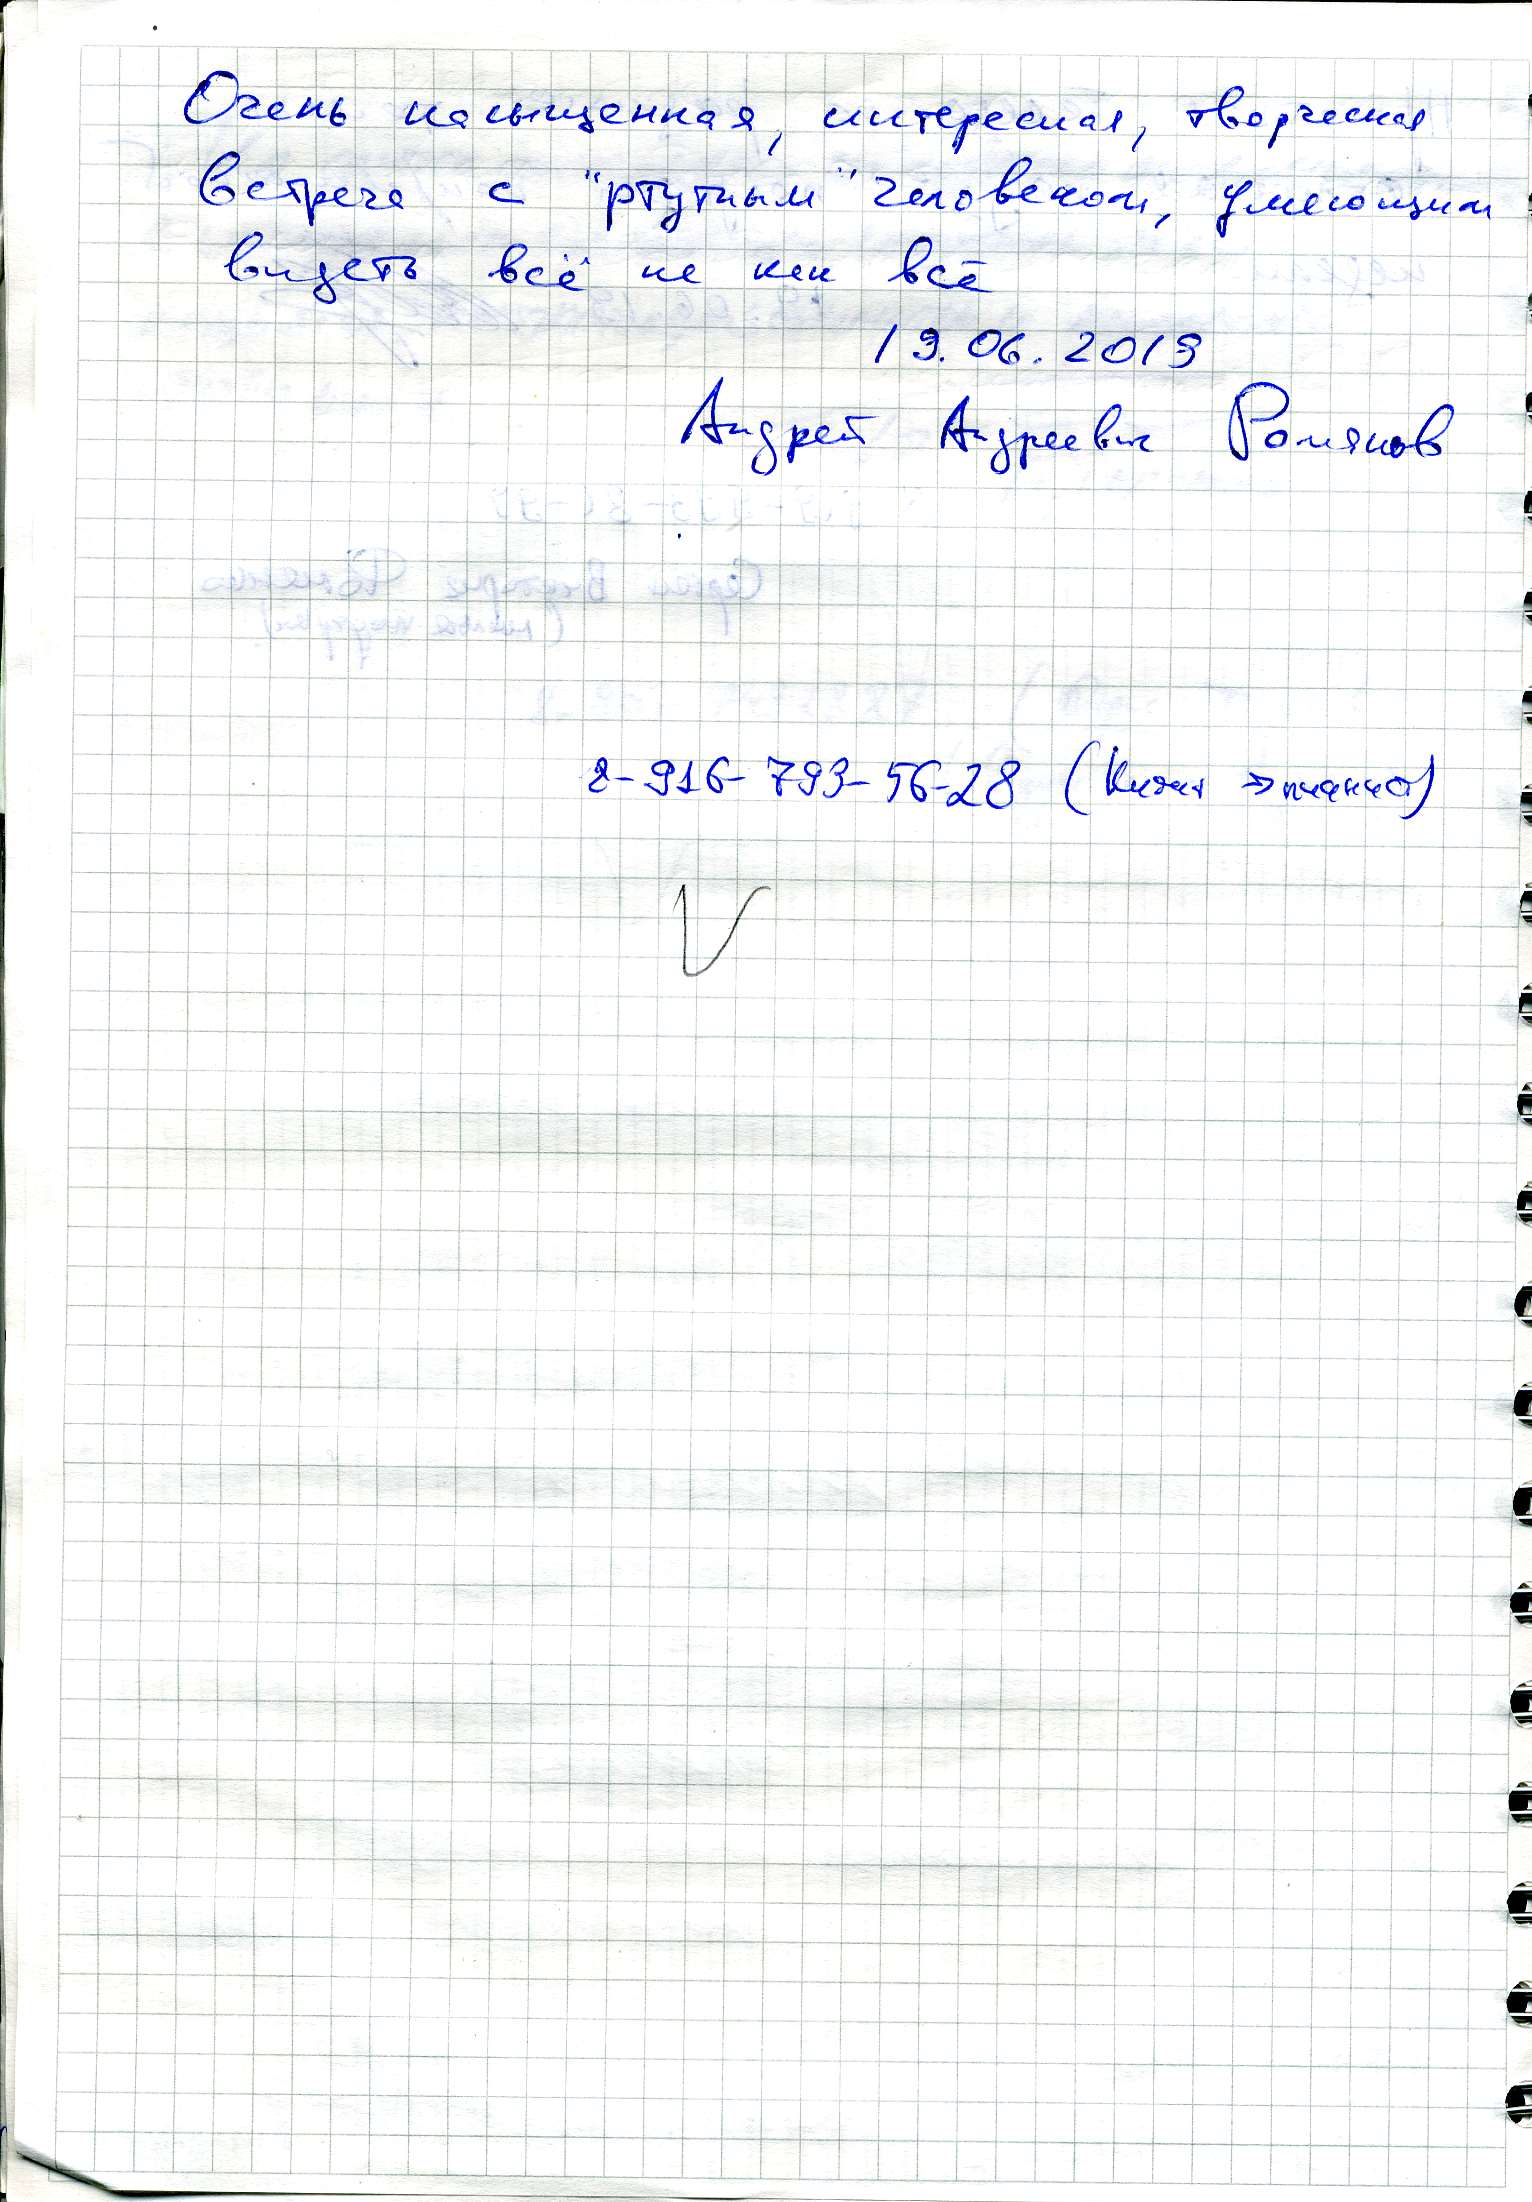 Очень насыщенная, интересная, творческая
встреча с "ртутным" человеком, умеющим
видеть всё не как всё
19.06.2019
Андрей Андреевич Романов
8-916-793-56-28 (